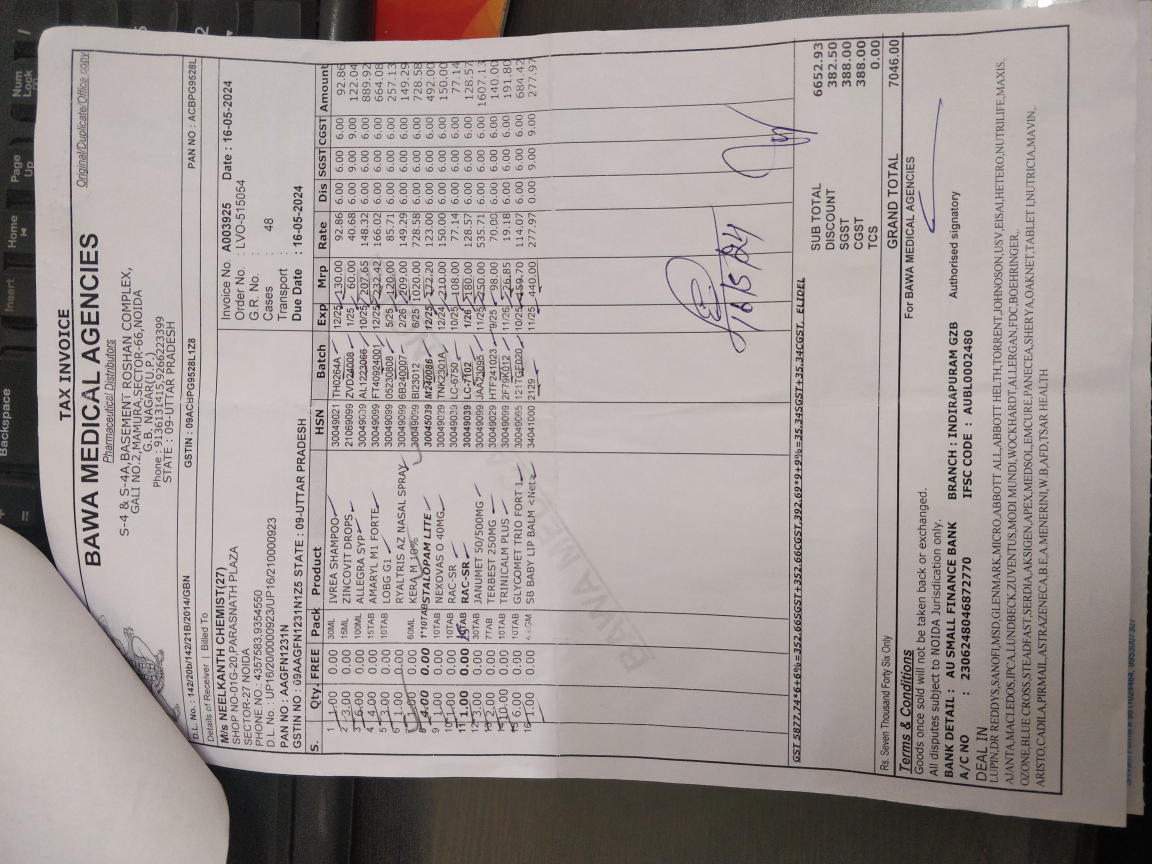 TAX INVOICE
Original/Duplicate/Office copy
BAWA MEDICAL AGENCIES
Pharmaceutical Distributors
S-4 & S-4A, BASEMENT ROSHAN COMPLEX,
GALI NO.2, MAMURA,SECTOR-66,NOIDA
G.B. NAGAR(U.P.)
Phone : 9136131415,9266223399
STATE : 09-UTTAR PRADESH
D.L. No. : 142/20b/142/21B/2014/GBN GSTIN : 09ACBPG9528L1Z8 PAN NO : ACBPG9528L
Details of Receiver | Billed To
M/s NEELKANTH CHEMIST(27)
SHOP NO-01G-20,PARASNATH PLAZA
SECTOR-27 NOIDA
PHONE NO.: 4357583,9354550
D.L. No : UP16/20/0000923/UP16/210000923
PAN NO : AAGFN1231N
GSTIN NO : 09AAGFN1231N1Z5 STATE : 09-UTTAR PRADESH
Invoice No. A003925 Date : 16-05-2024
Order No. : LVO-515054
G.R. No. :
Cases 48
Transport :
Due Date : 16-05-2024
S. Qty. FREE Pack Product HSN Batch Exp Mrp Rate Dis SGST CGST Amount
1 1.00 0.00 30ML IVREA SHAMPOO 30049021 TH0264A 12/25 130.00 92.86 6.00 6.00 6.00 92.86
2 3.00 0.00 15ML ZINCOVIT DROPS 21069099 ZVD24008 1/25 60.00 40.68 6.00 9.00 9.00 122.04
3 6.00 0.00 100ML ALLEGRA SYP 30049039 AL1223066 10/25 207.65 148.32 6.00 6.00 6.00 889.92
4 4.00 0.00 15TAB AMARYL M1 FORTE 30049099 FT40924001 12/25 232.42 166.02 6.00 6.00 6.00 664.08
5 3.00 0.00 10TAB LOBG G1 30049099 05230808 5/25 120.00 85.71 6.00 6.00 6.00 257.13
6 1.00 0.00 RYALTRIS AZ NASAL SPRAY 30049099 6B240007 2/26 209.00 149.29 6.00 6.00 6.00 149.29
0.00 60ML KERA M 10% 30049099 BI23012 6/25 1020.00 728.58 6.00 6.00 6.00 728.58
8 4.00 0.00 1*10TAB STALOPAM LITE 30045039 M240086 12/25 172.20 123.00 6.00 6.00 6.00 492.00
9 1.00 0.00 10TAB NEXOVAS O 40MG 30049029 TNK2301A 12/24 210.00 150.00 6.00 6.00 6.00 150.00
1.00 0.00 10TAB RAC-SR 30049039 LC-6750 10/25 108.00 77.14 6.00 6.00 6.00 77.14
11 1.00 0.00 15TAB RAC-SR 30049039 LC-7102 1/26 180.00 128.57 6.00 6.00 6.00 128.57
12 3.00 0.00 30TAB JANUMET 50/500MG 30049099 JAA23095 11/25 750.00 535.71 6.00 6.00 6.00 1607.13
13 2.00 0.00 7TAB TERBEST 250MG 30049029 HTF241023 9/25 98.00 70.00 6.00 6.00 6.00 140.00
14 10.00 0.00 10TAB TRINICALM PLUS 30049099 P2F79K012 11/25 26.85 19.18 6.00 6.00 6.00 191.80
15 6.00 0.00 10TAB GLYGOMET TRIO FORT 1 30049065 10/25 159.70 114.07 6.00 6.00 6.00 684.42
16 1.00 0.00 SB BABY LIP BALM <Net> 34041000 2129 11/25 440.00 277.97 0.00 9.00 9.00 277.97
16/5/24
GST 5877.74*6+6%=352.66SGST+352.66CGST,392.69*9+9%=35.34SGST+35.34CGST, ELIDEL
SUB TOTAL 6652.93
DISCOUNT 382.50
SGST 388.00
CGST 388.00
TCS 0.00
Rs. Seven Thousand Forty Six Only GRAND TOTAL 7046.00
Terms & Conditions
Goods once sold will not be taken back or exchanged.
All disputes subject to NOIDA Jurisdication only.
For BAWA MEDICAL AGENCIES
BANK DETAIL : AU SMALL FINANCE BANK BRANCH : INDIRAPURAM GZB
A/C NO : 2306248046872770 IFSC CODE : AUBL0002480
Authorised signatory
DEAL IN
LUPIN,DR REDDYS,SANOFI,MSD,GLENMARK,MICRO,ABBOTT ALL,ABBOTT HELTH,TORRENT,JOHNSON,USV,EISAI,HETERO,NUTRILIFE,MAXIS,
AJANTA,MACLEDOS,IPCA,LUNDBECK,ZUVENTUS,MODI MUNDI,WOCKHARDT,ALLERGAN,FDC,BOEHRINGER,
OZONE,BLUE CROSS,STEADFAST,SERDIA,AKSIGEN,APEX,MEDSOL,EMCURE,PANECEA,SHERYA,OAKNET,TABLET I,NUTRICIA,MAVIN,
ARISTO,CADILA,PIRMAIL,ASTRAZENECA,B.E,A.MENERINI,W.B,AFD,TSAR HEALTH
Backspace
Insert
Home
Page Up
Num Lock